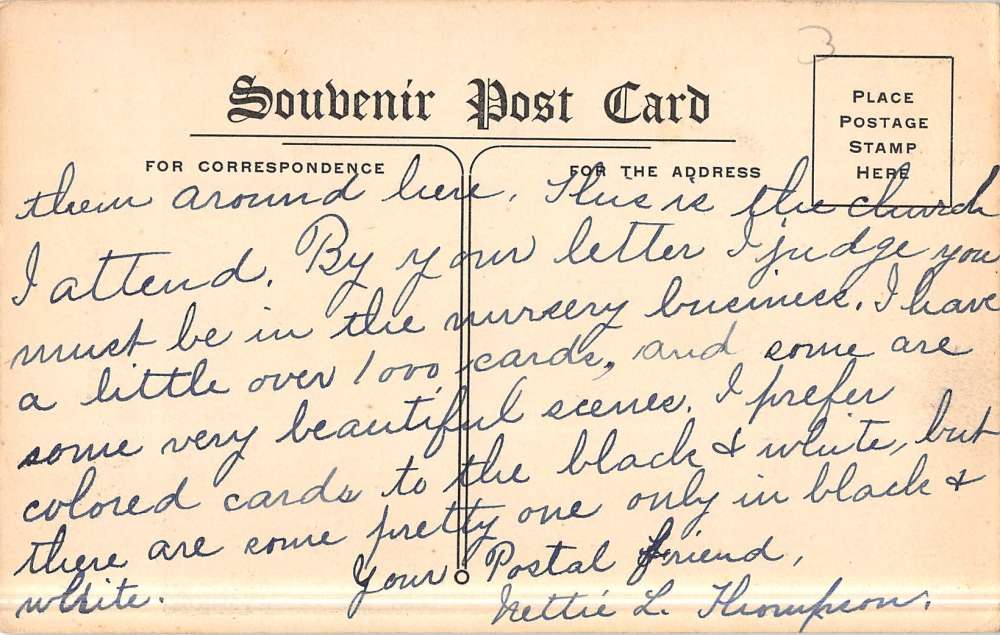 3
Souvenir Post Card
PLACE
POSTAGE
STAMP
HERE
FOR CORRESPONDENCE
FOR THE ADDRESS
them around here. This is the church
I attend. By your letter I judge you
must be in the nursery business. I have
a little over 1000 cards, and some are
some very beautiful scenes. I prefer
colored cards to the black & white, but
there are some pretty one only in black &
white.
Your Postal friend,
Nettie L. Thompson.